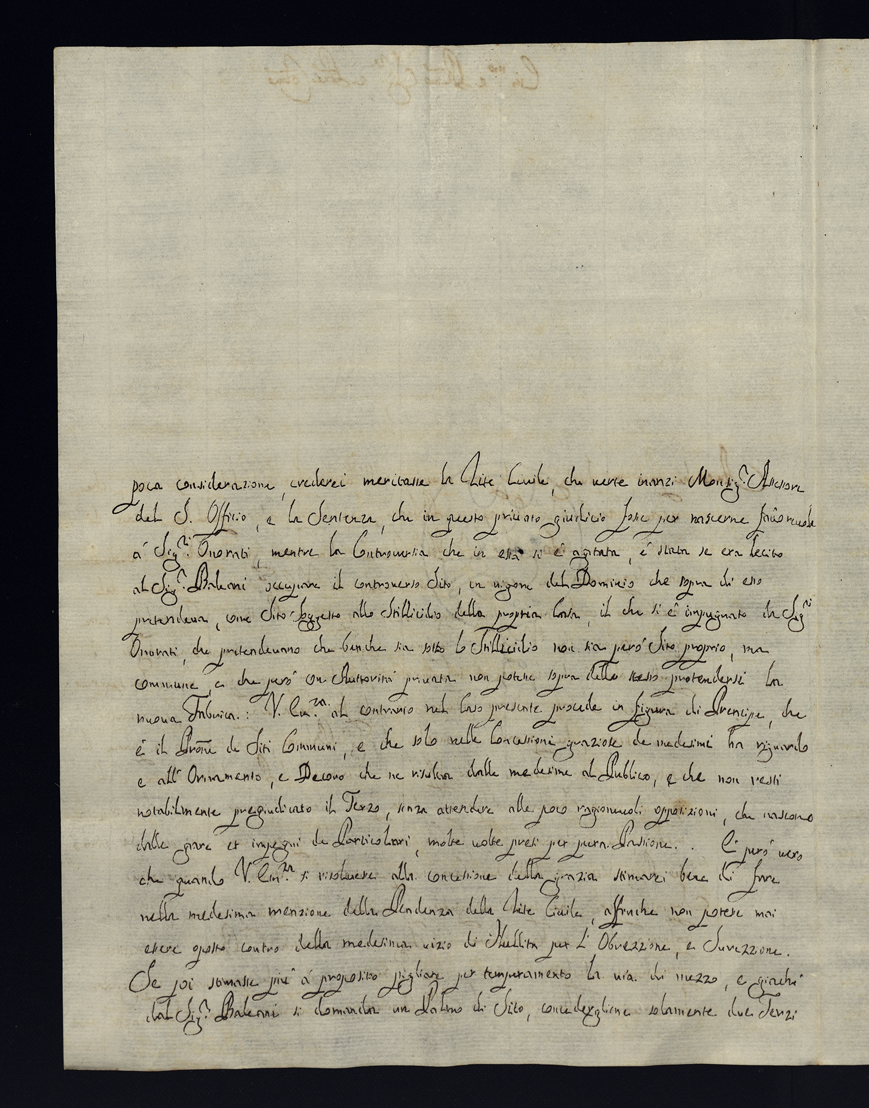 poca considerazione, crederei meritasse la Lite Civile, che verte inanzi Monsig.r Assessore
del S. Offizio, e la Sentenza, che in questo privato giudicio fosse per nascerne favorevole
à Sig.ri Onorati, mentre la Controversia che in essa si è agitata, é stata se era lecito
al Sig.r Baleani occupare il controverso Sito, in vigore del Dominio che sopra di esso
pretendeva, come Sito soggetto allo Stillicidio della propria Casa, il che si é impugnato da Sig.ri
Onorati, che pretendevano che benche sia sotto lo Stillicidio non sia però Sito proprio, ma
commune, e che però con Auttorità privata non potesse sopra dello stesso protendersi la
nuova Fabrica.: V. Em.za al contrario nel Caso presente procede in figura di Prencipe, che
é il Prōne de Siti Communi, e che solo nelle Concessioni graziose de medesimi ha riguardo
e all' Ornamento, e Decoro che ne risulta dalle medesime al Publico, e che non resti
notabilmente pregiudicato il Terzo, senza attendere alle poco ragionevoli opposizioni, che nascono
dalle gare et impegni de Particolari, molte volte presi per pura Passione. . É però vero
che quando V. Em.za si risolvesse alla concessione della grazia stimarei bene di fare
nella medesima menzione della Pendenza della Lite Civile, affinche non potesse mai
essere opposto contro della medesima vizio di Nullità per L' Obrezzione, e Surezzione.
Se poi stimasse più à proposito pigliare per temperamento la via di mezzo, e giachè
dal Sig.r Baleani si domanda un Palmo di Sito, concedergliene solamente due Terzi